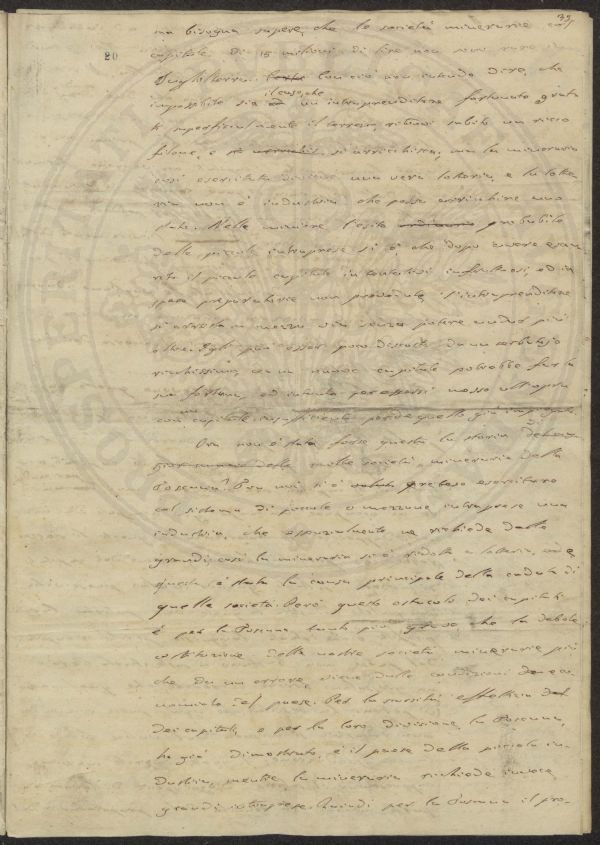 39
20
ma bisogna sapere, che le società minerarie col
capitale di 15 milioni di lire non sono rare in
Inghilterra. Con ciò non intendo dire, che
il caso, che
impossibile sia un intraprenditore fortunato gratti
superficialmente il terreno, ritrovi subito un ricco
filone, e si arricchisca, ma la mineraria
così esercitata diviene una vera lotteria, e la lotte
ria non è industria che possa arricchire uno
stato. Nelle miniere l'esito ordinario probabile
delle piccole intraprese si è, che dopo avere esau
rito il piccolo capitale in tentativi infruttuosi, ed in
spese preparatorie non prevedute l'intraprenditore
si arresta a mezza via senza potere andar più
oltre. Egli può esser poco discosto da un
ricchissimo, con un nuovo capitale potrebbe far la
sua fortuna, ed intanto per essersi messo all'opra
con un capitale insufficiente perde quello già impiegato
Ora non è stata forse questa la storia
delle molte società mineraria della
Toscana? Tra noi si è preteso esercitare
col sistema di piccole o mezzane intraprese una
industria, che essenzialmente ne richiede delle
grandi; così la mineraria si è ridotta a lotteria, e
questa è stata la causa principale della caduta di
quelle società. Però questo ostacolo dei capitali
è per la Toscana tanto più grave, che la debole
costituzione delle nostre società minerarie più
che da un errore, viene dalle condizioni eco
nomiche del paese. Per la
dei capitali, e per la loro divisione, la Toscana,
ho già dimostrato, è il paese della piccola in
dustria, mentre la mineraria richiede invece
grandi intraprese. Quindi per la Toscana il pro-